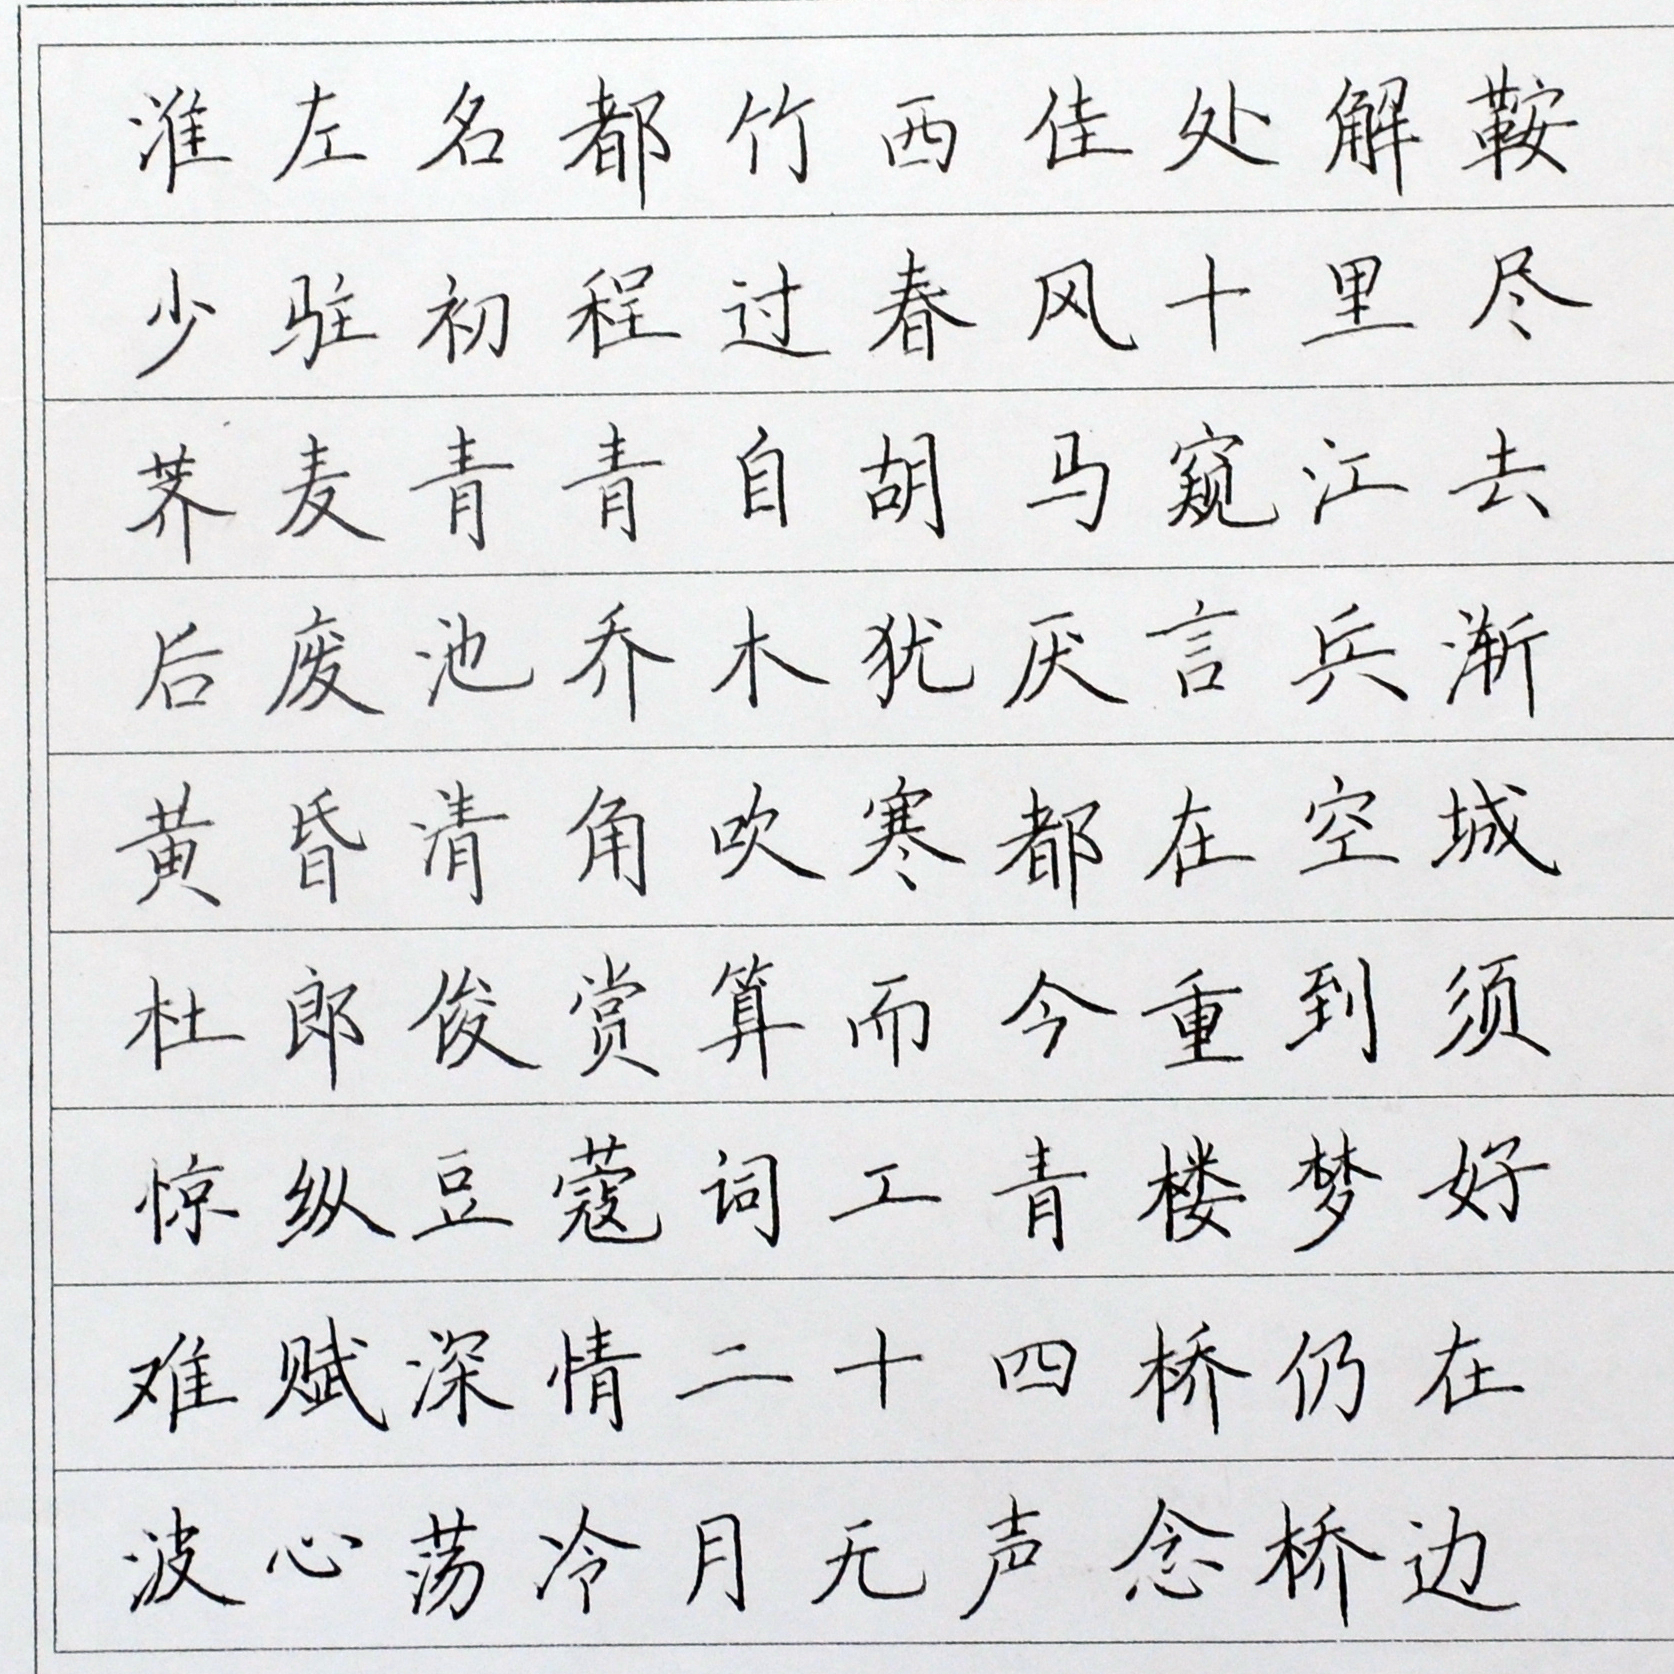 淮左名都竹西佳处解鞍
少驻初程过春风十里尽
荠麦青青自胡马窥江去
后废池乔木犹厌言兵渐
黄昏清角吹寒都在空城
杜郎俊赏算而今重到须
惊纵豆蔻词工青楼梦好
难赋深情二十四桥仍在
波心荡冷月无声念桥边